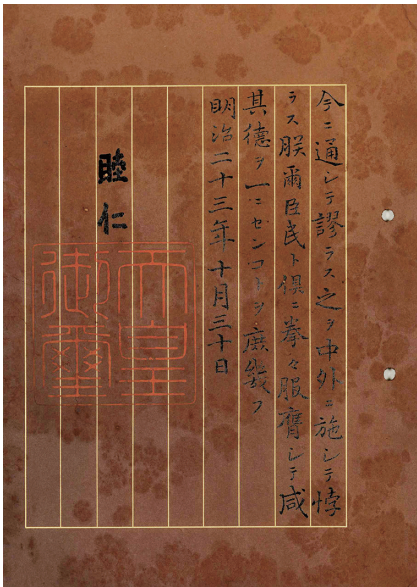 今ニ通シテ謬ラス之ヲ中外ニ施シテ悖
ラス朕爾臣民ト倶ニ拳々服膺シテ咸
其德ヲ一ニセンコトヲ庶幾フ
明治二十三年十月三十日
睦仁
天皇
御璽